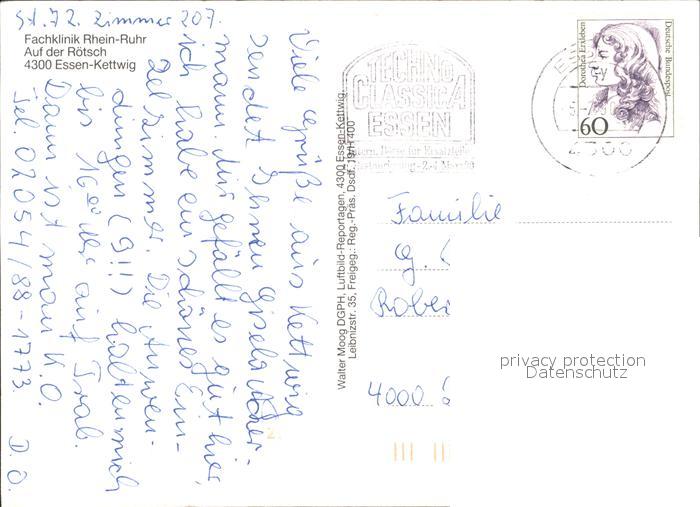 St. 72. Zimmer 207.
Fachklinik Rhein-Ruhr
Auf der Rötsch
4300 Essen-Kettwig
Viele Grüße aus Kettwig
sendet Ihnen Gisela
mann. Mir gefällt es gut hier,
ich habe ein schönes Ein-
zelzimmer. Die Anwen-
dungen (9!!) halten mich
bis 16 00 Uhr auf Trab.
Dann ist man K.O.
Tel. 02054/88-1773.
D. O.
Walter Moog DGPH, Luftbild-Reportagen, 4300 Essen-Kettwig,
Leibnizstr. 35, Freigeg.: Reg.-Präs. Dsdf. 19/H 400
TECHNO
CLASSICA
ESSEN
Intern. Börse für Ersatzteile
Dorothea Erxleben
Deutsche Bundespost
60
4300
Familie
G.
4000
privacy protection
Datenschutz